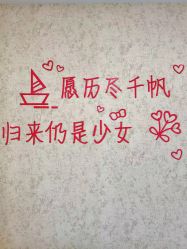 愿历尽千帆
归来仍是少女